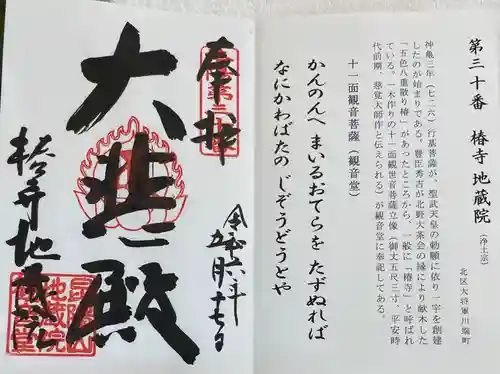 第三十番 椿寺 地蔵院（浄土宗）
北区大将軍川端町
神亀三年（七二六）行基菩薩が、聖武天皇の勅願に依り一宇を創建
したのが始まりである。豊臣秀吉が北野大茶会の縁により献木した
「五色八重散り椿」があったところから、一般に「椿寺」と呼ばれ
ている。一木作りの十一面観世音菩薩立像（御丈五尺三寸、平安時
代前期、慈覚大師作と伝えられる）が観音堂に奉祀してある。
十一面観音菩薩（観音堂）
かんのんへ まいるおてらを たずぬれば
なにかわばたの じぞうどうとや
奉拝
令和六年
五月十七日
大悲殿
椿寺地蔵院